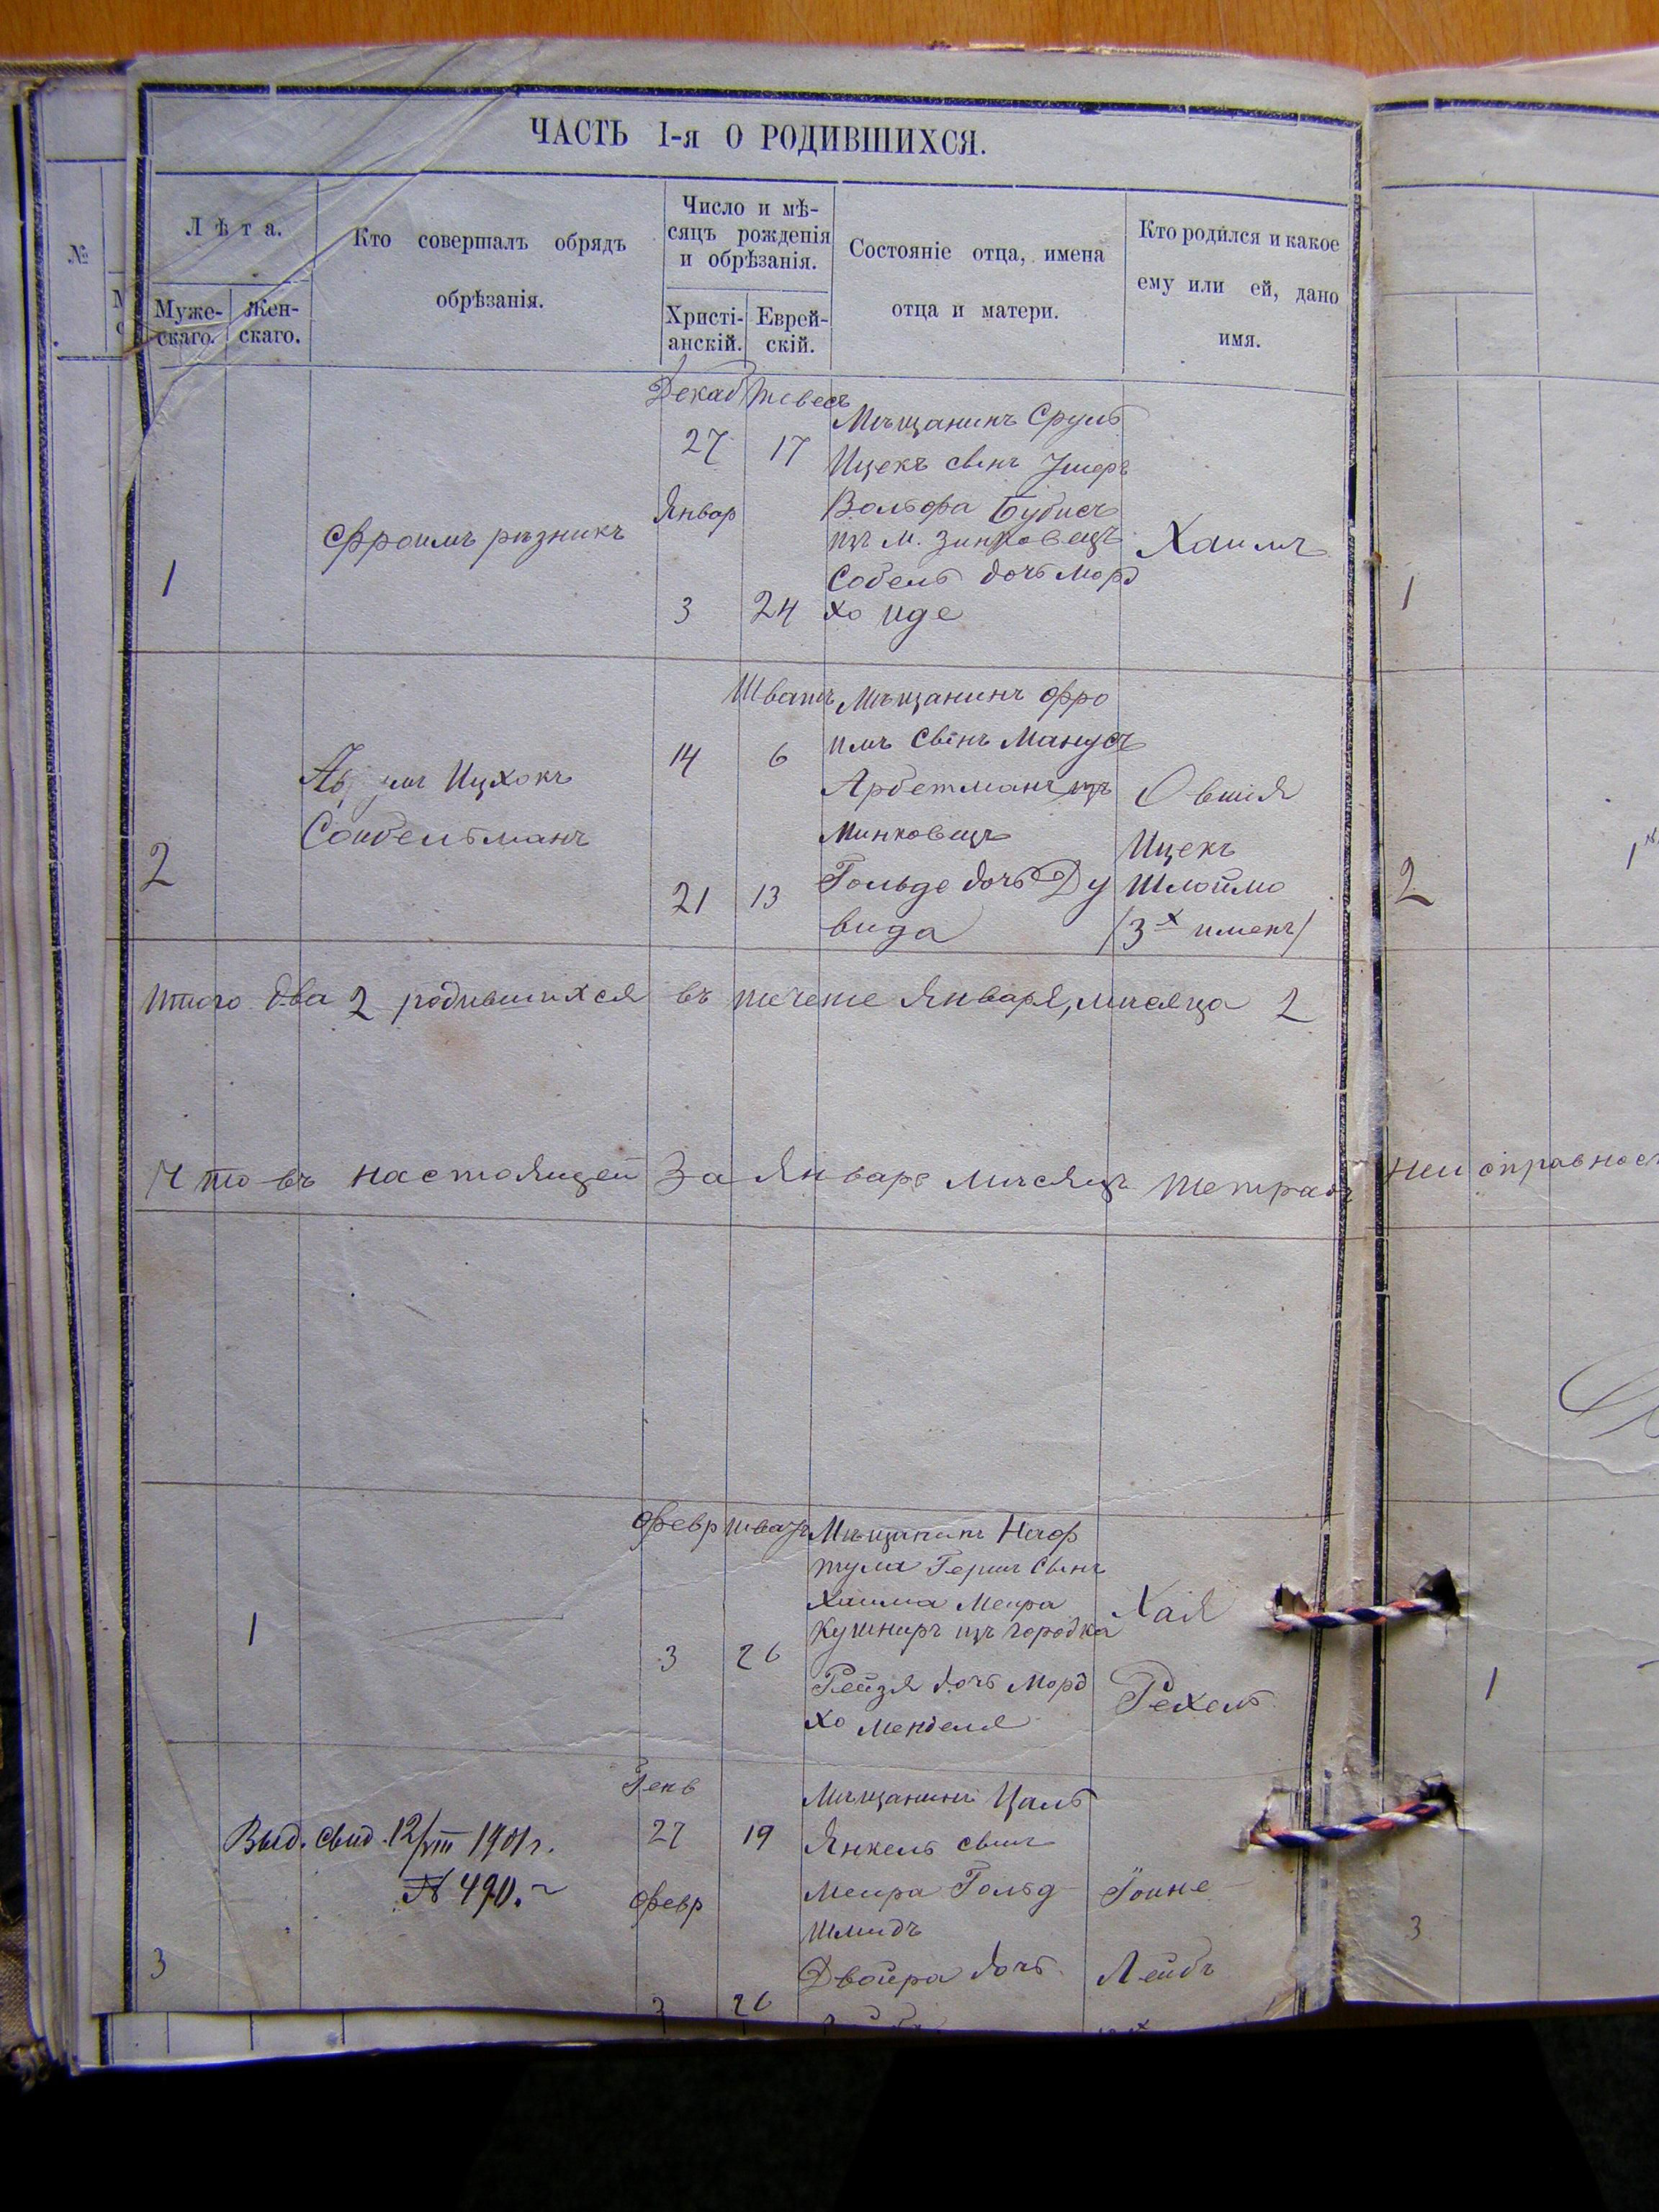 ЧАСТЬ I-я О РОДИВШИХСЯ.
№
Лѣта.
Муже-
скаго.
Жен-
скаго.
Кто совершалъ обрядъ
обрѣзанія.
Число и мѣ-
сяцъ рожденія
и обрѣзанія.
Христі-
анскій.
Еврей-
скій.
Состояніе отца, имена
отца и матери.
Кто родился и какое
ему или ей, дано
имя.
1
Фроимъ рѣзникъ
Декаб
27
Январ
3
Тевесъ
17
24
Мѣщанинъ Сруль
Ицекъ свнъ Умеръ
Вольфа Бубисъ
изъ М. Зинковецъ
Собель дочь Морд
хо Иде
Хаимъ
1
2
Ицхокъ
Сойбельманъ
14
21
Шватъ
6
13
Мѣщанинъ Фро
имъ Свiнъ Манусъ
Арбетманъ изъ
Минковецъ
Гольде дочь Ду
вида
Овшiя
Ицекъ
Шлоймо
/3х именъ/
2
Итого два 2 родившихся въ течете Января, мисяца 2
Что въ настоящей За Январь Мисяцъ тетрадъ
неисправност
1
Февр
3
шватъ
26
Мѣщанинъ Наф
тула Гершъ Свинъ
Хаима Меира
Кушниръ изъ городка
Рейзя дочь Морд
хо Менделя
Хая
Рехель
1
3
Выд. свид. 12/VIII 1901 г.
№ 490.
Генв
27
Февр
3
19
26
Мѣщанинъ Цаль
Янкель свинъ
Меира Гольд
шмидъ
Двойра дочь
Іойне
Лейбъ
3